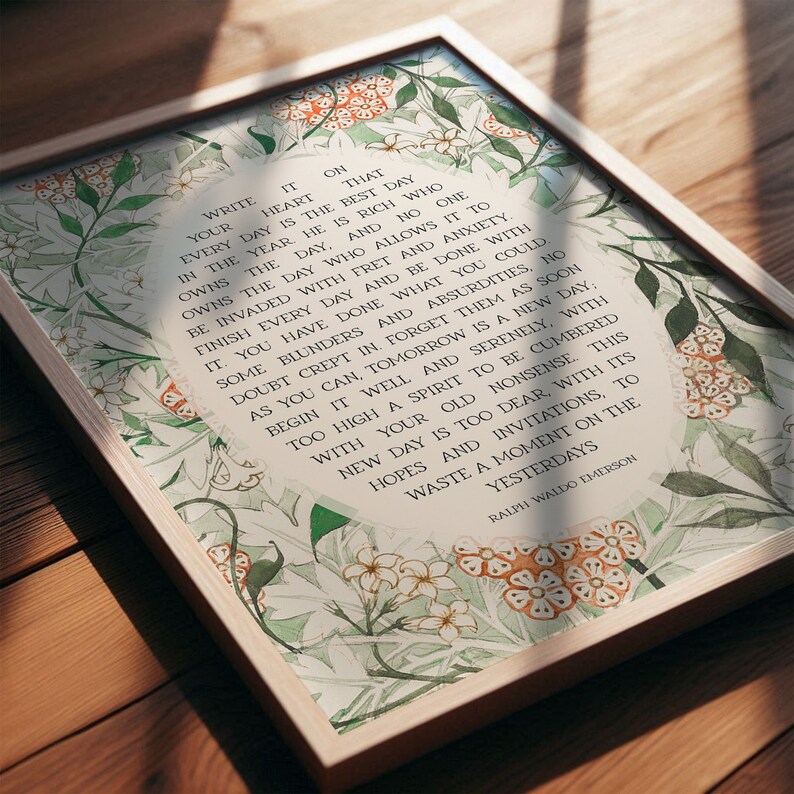 WRITE IT ON
YOUR HEART THAT
EVERY DAY IS THE BEST DAY
IN THE YEAR. HE IS RICH WHO
OWNS THE DAY, AND NO ONE
OWNS THE DAY WHO ALLOWS IT TO
BE INVADED WITH FRET AND ANXIETY.
FINISH EVERY DAY AND BE DONE WITH
IT. YOU HAVE DONE WHAT YOU COULD.
SOME BLUNDERS AND ABSURDITIES, NO
DOUBT CREPT IN. FORGET THEM AS SOON
AS YOU CAN, TOMORROW IS A NEW DAY;
BEGIN IT WELL AND SERENELY, WITH
TOO HIGH A SPIRIT TO BE CUMBERED
WITH YOUR OLD NONSENSE. THIS
NEW DAY IS TOO DEAR, WITH ITS
HOPES AND INVITATIONS, TO
WASTE A MOMENT ON THE
YESTERDAYS
RALPH WALDO EMERSON